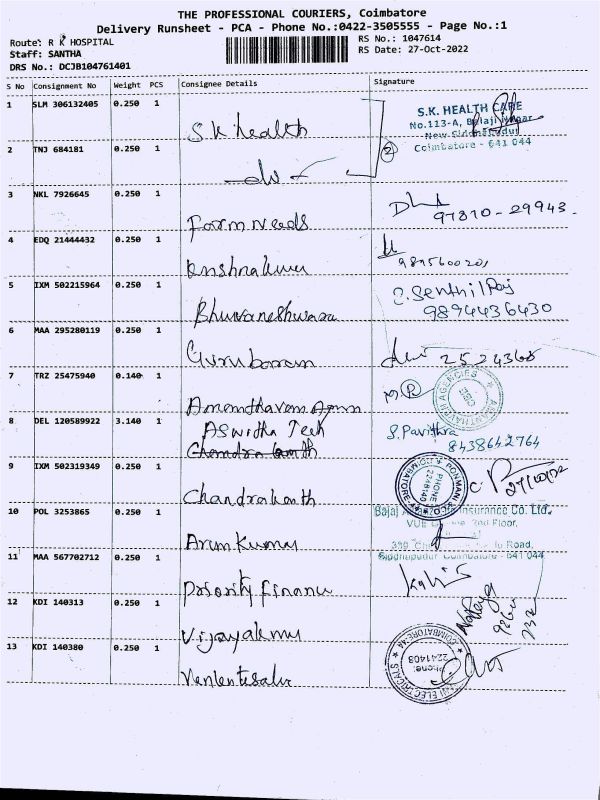 THE PROFESSIONAL COURIERS, Coimbatore
Delivery Runsheet - PCA - Phone No.:0422-3505555 - Page No.:1
Route: R K HOSPITAL
RS No.: 1047614
Staff: SANTHA
RS Date: 27-Oct-2022
DRS No.: DCJB104761401
S No Consignment No Weight PCS Consignee Details Signature
1 SLM 306132405 0.250 1
S.K. HEALTH CARE
No.113-A, Balaji Nagar
S K health
New Siddhapudur
Coimbatore - 641 044
2 TNJ 684181 0.250 1
2
3 NKL 7926645 0.250 1
Form Needs
97870-29943
4 EDQ 21444432 0.250 1
Krishnakumar
5 IXM 502215964 0.250 1
C. Senthil Raj
Bhuvaneshwara
9894436430
6 MAA 295280119 0.250 1
2524368
7 TRZ 25475940 0.140 1
8 DEL 120589922 3.140 1
Aswitha Tech
S. Pavithra
8438642764
9 IXM 502319349 0.250 1
PHONE
2248140
COIMBATORE
Chandrakanth
27/10/22
10 POL 3253865 0.250 1
Bajaj Insurance Co. Ltd.
2nd Floor,
Road,
Arun Kumar
Siddhapudur Coimbatore - 641 044
11 MAA 567702712 0.250 1
Priority Finance
12 KDI 140313 0.250 1
13 KDI 140380 0.250 1
COIMBATORE-44
Phone:
2241403
ELECTRICALS